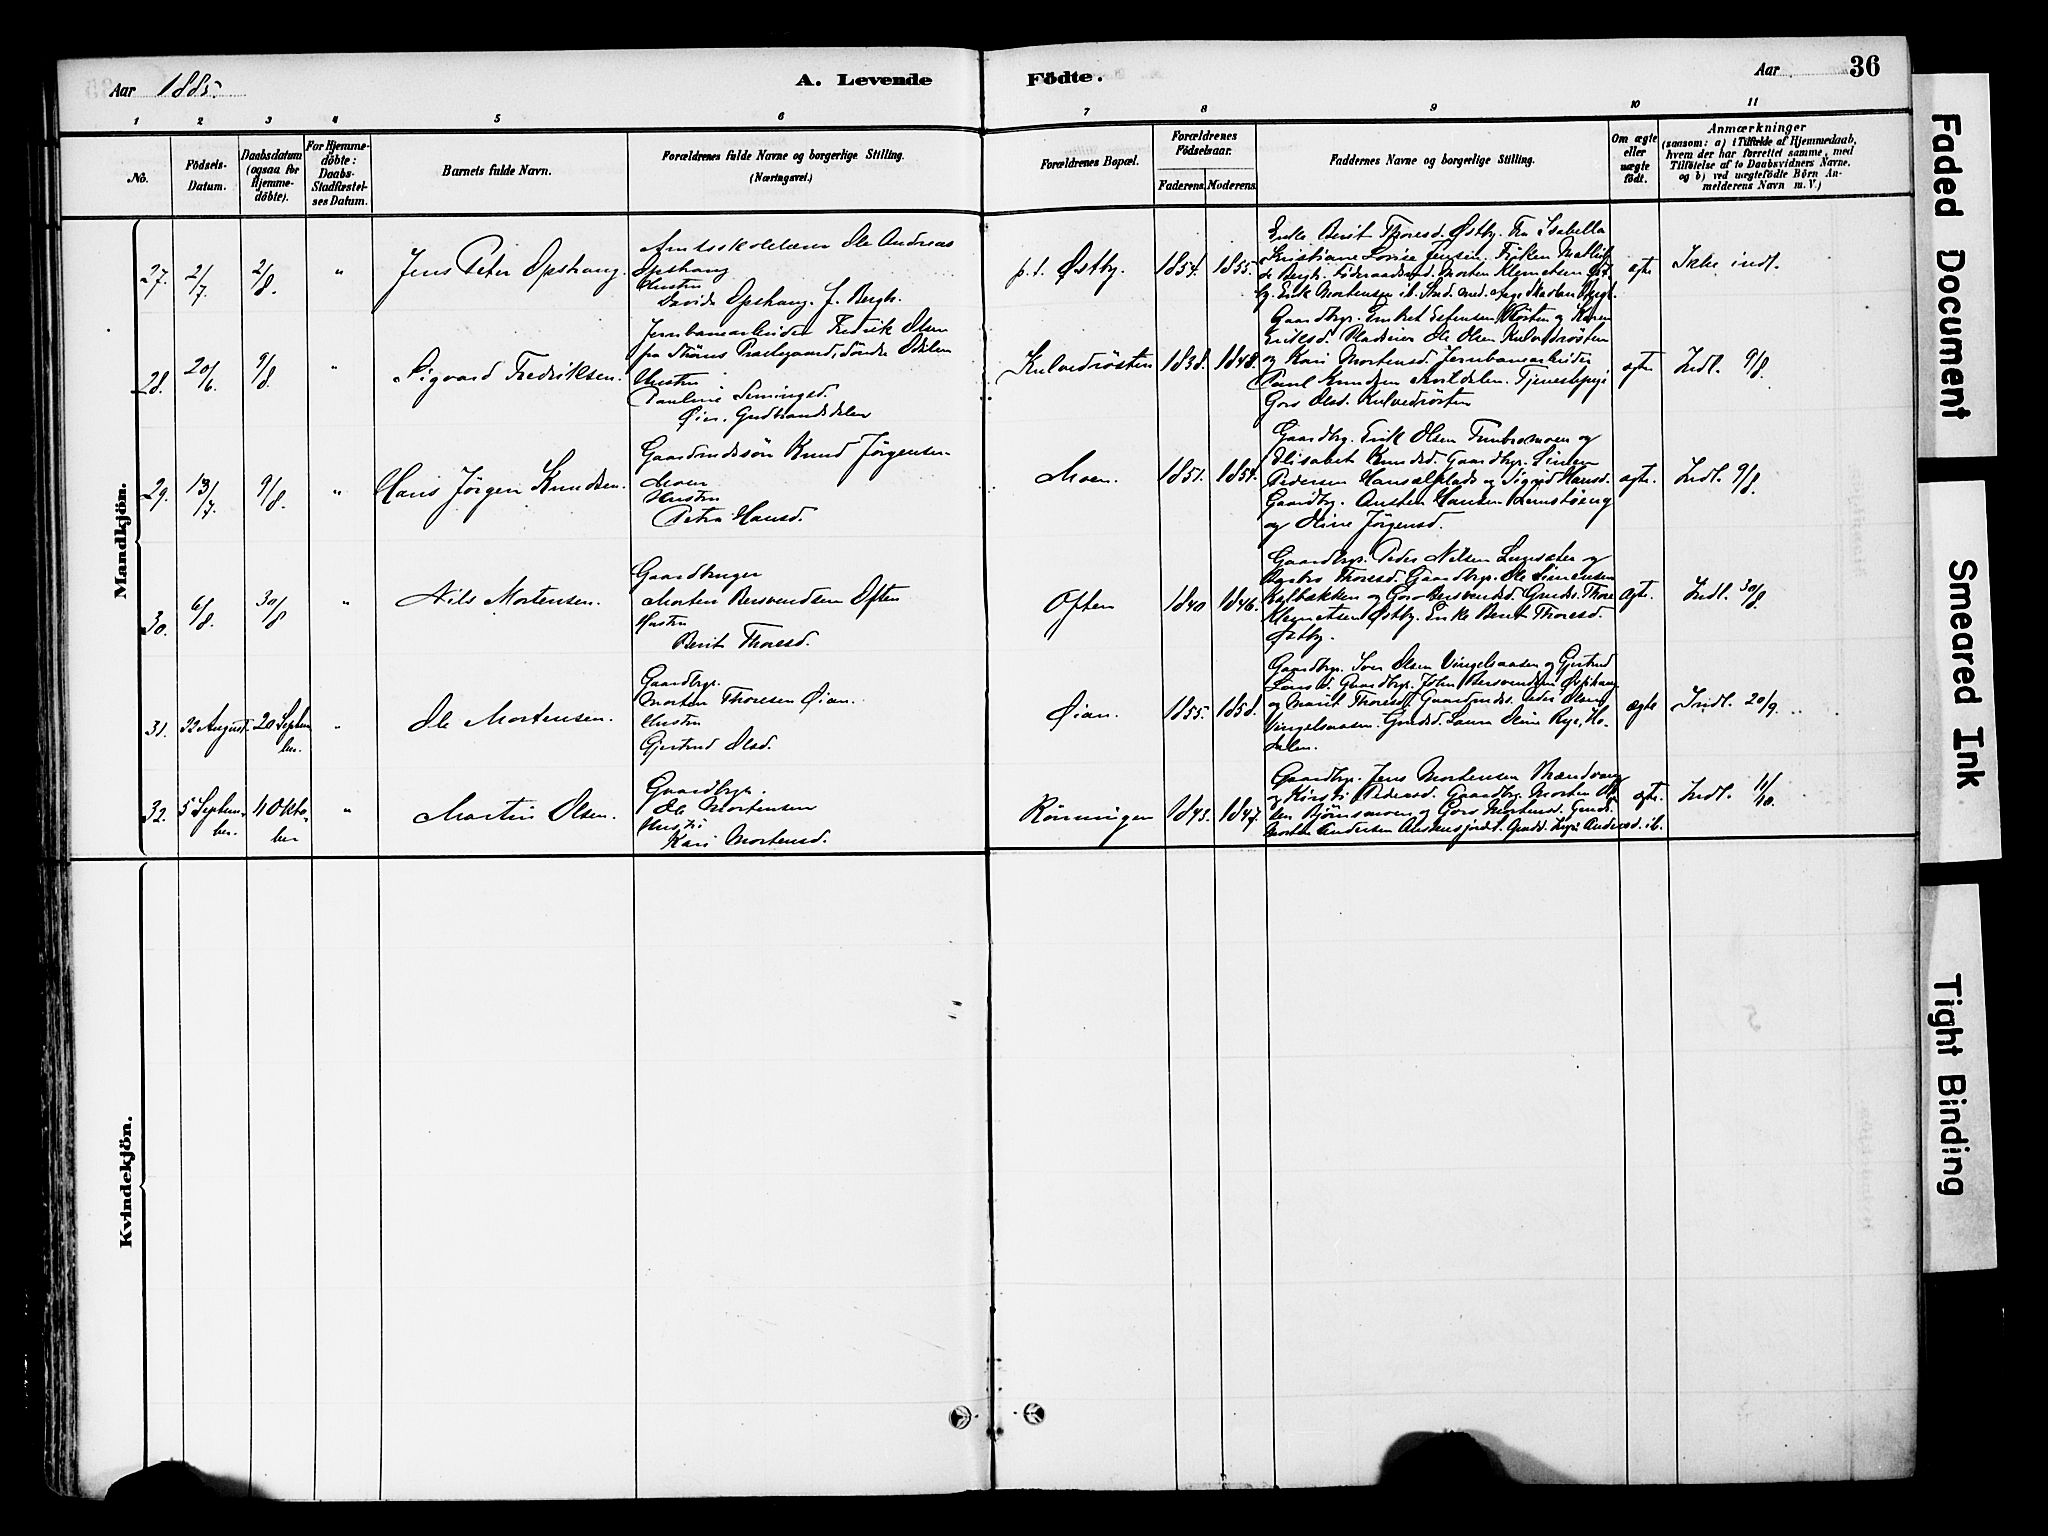 Aar 1885.
A. Levende
Födte.
Aar
36
1 2 3 4 5 6 7 8 9 10 11
No.
Födsels-
Datum.
Daabsdatum
(ogsaa for
Hjemme-
döbte).
For Hjemme-
döbte:
Daabs-
Stadfæstel-
ses Datum.
Barnets fulde Navn.
Forældrenes fulde Navne og borgerlige Stilling.
(Næringsvei.)
Forældrenes Bopæl.
Forældrenes
Födselsaar.
Faderens. Moderens.
Faddernes Navne og borgerlige Stilling.
Om ægte
eller
uægte
födt.
Anmærkninger
(saasom: a) i Tilfælde af Hjemmedaab,
hvem der har forrettet samme, med
Tilføielse af to Daabsvidners Navne,
og b) ved uægtefödte Börn An-
melderens Navn m. V.)
Mandkjön.
27. 2/7 2/8. " Jens Peter Opshaug.
Amtsskolelærer Ole Andreas
Opshaug
Hustru
Opshaug. f. Bergh.
p.t. Østby. 1854. 1855.
Enke Berit Thoresd. Østby. Fru Isabella
Kristiane Lovise Jensen. Frøken Mathil-
de Bergh. Føderaadsmd. Morten Klemetsen Øst-
by. Erik Mortensen ib. Stud. med.
ægte Ikke indl.
28. 20/6. 9/8. " Sigvard Fredriksen.
Jernbanearbeider Fredrik Olsen
fra Størens Præstegaard, Søndre
Hustru
Pauline Simingsd.
Øier, Gudbrandsdalen
Kulvedrösten 1838. 1848.
Gaardbgr. Embret Estensen Kösten og Karen
Eriksd. Pladseier Ole Olsen Kulvedrösten
og Kari Mortensd. Jernbanearbeider
Paul Tjenestepige
Goro Olsd. Kulvedrösten
ægte Indl. 9/8.
29. 13/7. 9/8. " Hans Jörgen Knudsen.
Gaardmdssön Knud Jörgensen
Moen
Hustru
Petra Hansd.
Moen. 1851. 1854.
Gaardbg. Erik Olsen Tmbromoen og
Elisabet Knudsd. Gaardbgr. Simen
Pedersen Hansælplads og Sigrid Hansd.
Gaardbg. Austen Hansen
og Oline Jörgensd.
ægte. Indl. 9/8.
30. 6/8. 30/8 " Nils Mortensen.
Gaardbruger
Morten Bersvendsen Often
Hustru
Berit Thoresd.
Often 1840 1846.
Gaardbgr. Peder Nilsen og
Thoresd. Gaardbgr. Ole Simensen
Kalbækken og Goro Bersvendsd. Gmds. Thore
Klemetsen Østby. Enke Berit Thoresd.
Østby.
ægte. Indl. 30/8.
31. 22 August 20 Septem
ber. " Ole Mortensen.
Gaardbgr.
Morten Thoresen Øian.
Hustru
Gjertrud Olsd.
Øian. 1855. 1858.
Gaardbgr. Iver Olsen Vingelsaasen og Gjertrud
Larsd. Gaardbgr. John Bersvendsen
og Marit Thoresd. Gaardmds. Peder Olsen
Vingelsaasen. Gmdsd. Laura Oline Rye, Ho-
dalen.
ægte Indl. 20/9.
32. 5 Septem-
ber. 11 Okto-
ber " Martin Olsen.
Gaardbgr.
Ole Mortensen
Hustru
Kari Mortensd.
Rönningen 1843. 1847.
Gaardbgr. Jens Mortensen
og Kirsti Pedersd. Gaardbg. Morten Ol-
sen og Goro Mortensd. Gmds.
Morten Andersen Gmdsd. Andersd. ib.
ægte. Indl. 11/10.
Kvindekjön.
Faded Document
Smeared Ink
Tight Binding